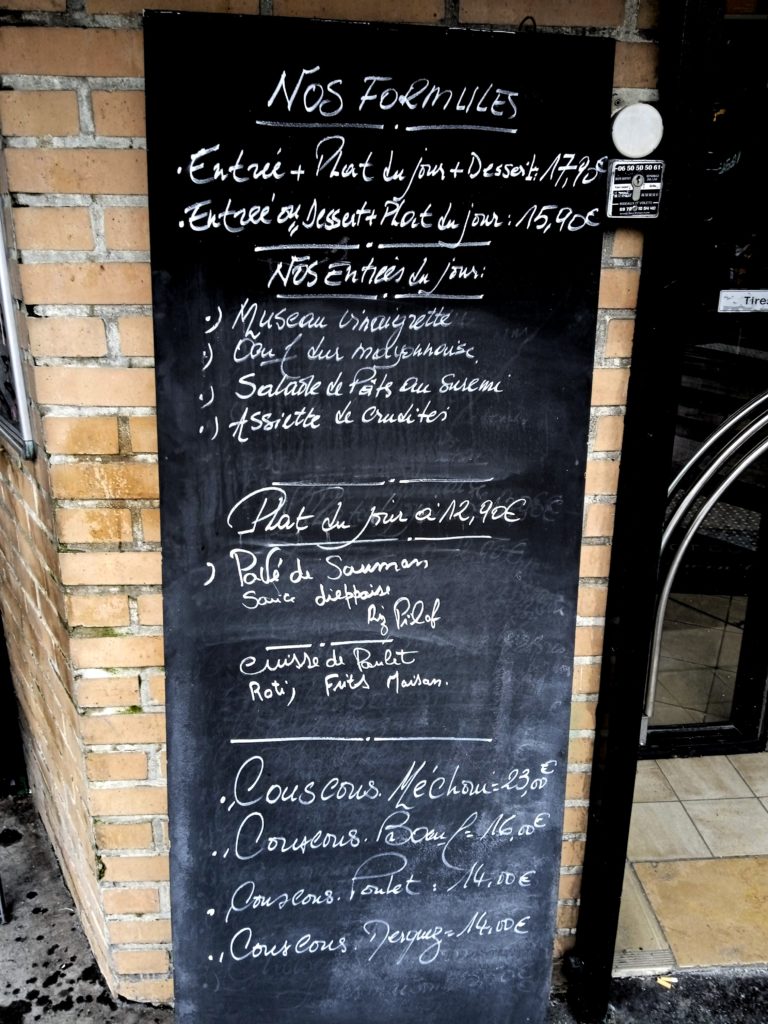 NOS FORMULES
. Entrée + Plat du jour + Dessert : 17,90€
. Entrée ou Dessert + Plat du jour : 15,90€
NOS Entrées du jour :
.) Museau vinaigrette
.) Oeuf dur mayonnaise
.) Salade de Pâts au Suremi
.) Assiette de crudités
Plat du jour à 12,90€
) Pavé de Saumon
Sauce dieppaise
Riz Pilof
cuisse de Poulet
Roti, Frits Maison.
. Couscous. Méchoui = 23,00€
. Couscous. Boeuf = 16,00€
. Couscous. Poulet : 14,00€
. Couscous. Merguez = 14,00€
06 50 50 50 61
Tirez